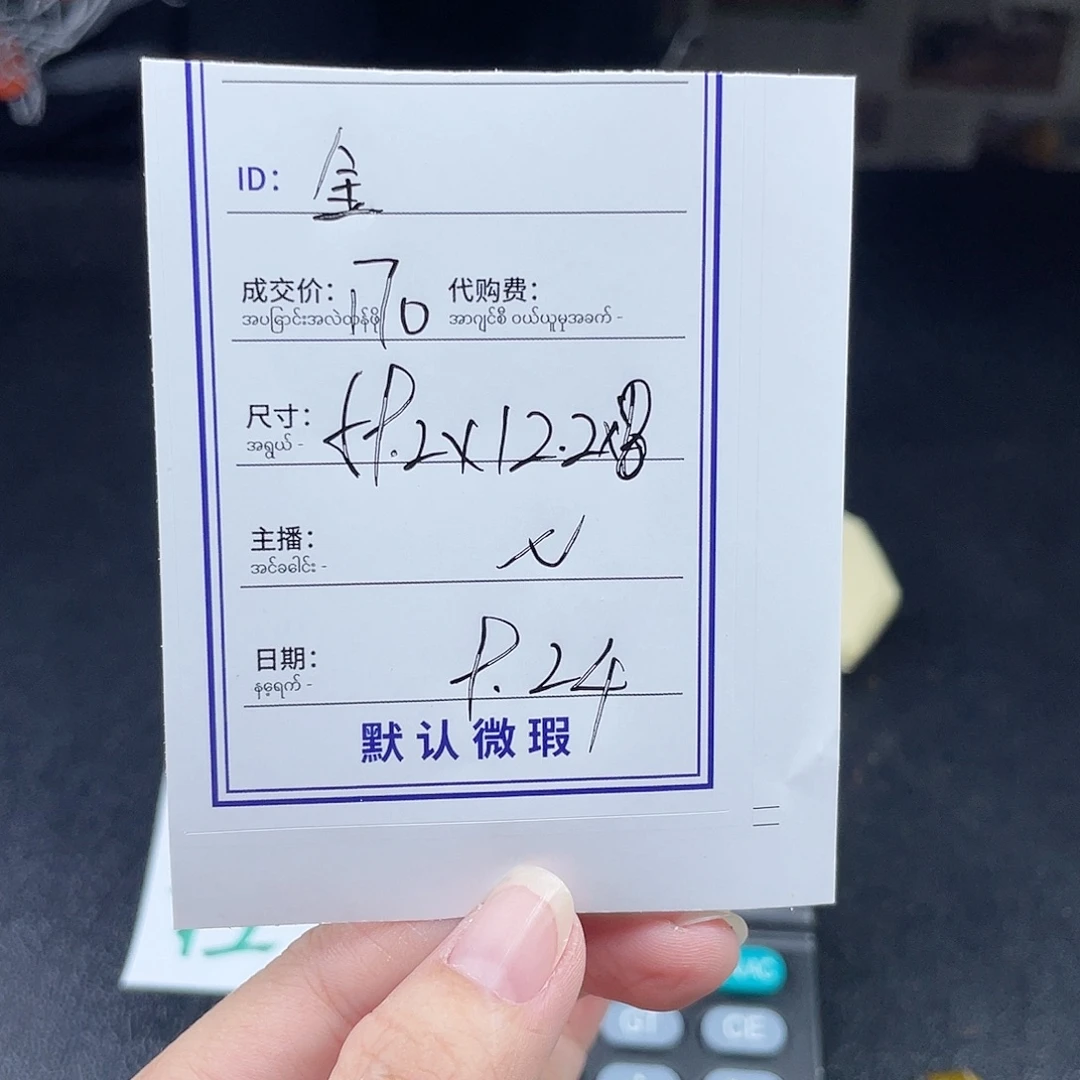 ID: 金
成交价: 170 代购费:
အပြောင်းအလဲတန်ဖိုး အာဂျင်စီ ဝယ်ယူမှုအခက် -
尺寸:
အရွယ် -
主播: N
အင်ခေါင်း -
日期: 9.24
နေ့ရက် -
默认微瑕
GT CE